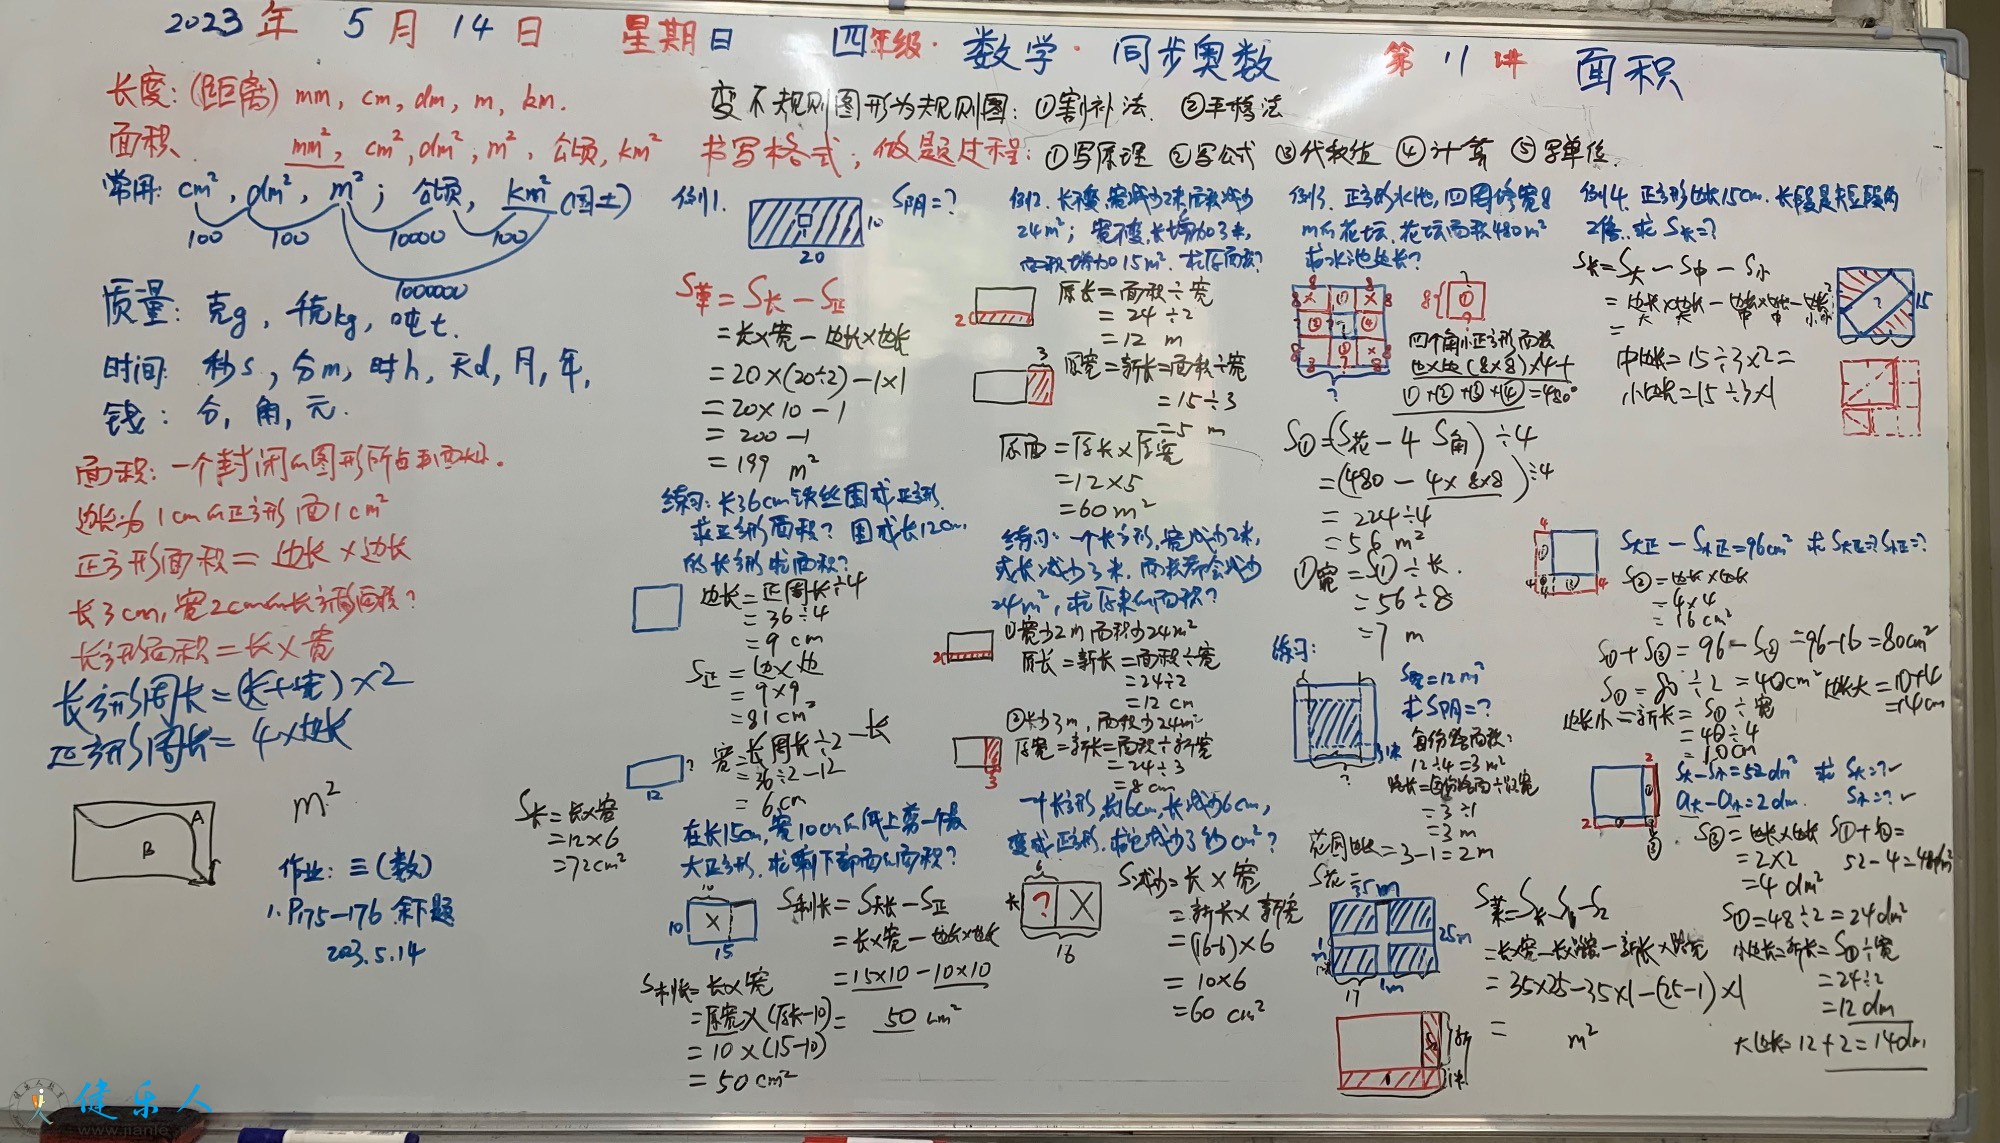 2023年 5月14日 星期日 四年级·数学·同步奥数 第11讲 面积
长度:(距离) mm, cm, dm, m, km.
面积 mm², cm², dm², m², 公顷, km²
常用: cm², dm², m²; 公顷, km²(国土)
100 100 10000 100
1000000
质量: 克g, 千克kg, 吨t.
时间: 秒s, 分m, 时h, 天d, 月, 年,
钱: 分, 角, 元.
面积: 一个封闭的图形所占平面大小.
边长为1cm的正方形面1cm²
正方形面积=边长×边长
长3cm, 宽2cm的长方形面积?
长方形面积=长×宽
长方形周长=(长+宽)×2
正方形周长=4×边长
A
B
m²
作业: 三(数)
1. P175-176 余下题
2023.5.14
变不规则图形为规则图: ①割补法. ②平移法
书写格式; 做题过程: ①写原理 ②写公式 ③代数值 ④计算 ⑤写单位.
例1. S阴=?
10
20
S草=S长-S正
=长×宽-边长×边长
=20×(20÷2)-1×1
=20×10-1
=200-1
=199 m²
练习: 长36cm铁丝围成正方形
求正方形面积? 围成长12cm
的长方形求面积?
边长=正周长÷4
=36÷4
=9 cm
S正=边×边
=9×9
=81cm²
宽=长周长÷2-长
=36÷2-12
=6cm
?
12
S长=长×宽
=12×6
=72cm²
在长15cm, 宽10cm的纸上剪一个最
大正方形. 求剩下部面的面积?
10
10
15
S剩长=S大长-S正
=长×宽-边长×边长
=15×10-10×10
=50cm²
S剩长=长×宽
=原宽×(原长-10)
=10×(15-10)
=50cm²
例2. 长不变, 宽减少2米, 面积减少
24m²; 宽不变, 长增加3米,
面积增加15m². 求原面积?
2
原长=面积÷宽
=24÷2
=12 m
3
原宽=新长=面积÷宽
=15÷3
=5 m
原面=原长×原宽
=12×5
=60m²
练习: 一个长方形, 宽减少2米,
或长减少3米, 面积都会减少
24m², 求原来的面积?
①宽少2m 面积少24m²
2
原长=新长=面积÷宽
=24÷2
=12 cm
②长少3m, 面积少24m²
原宽=新长=面积÷新宽
=24÷3
=8cm
3
一个长方形, 长16cm, 长减少6cm,
变成正方形. 求它减少了多少cm²?
6
?
16
S减少=长×宽
=新长×新宽
=(16-6)×6
=10×6
=60 cm²
例3. 正方形水池, 四周修宽8
m的花坛. 花坛面积480m²
求水池边长?
8{ ①
四个角小正方形面积
边×边(8×8)×4+
①+②+③+④=480
S①=(S花-4S角)÷4
=(480-4×8×8)÷4
=224÷4
=56 m²
①宽=S①÷长.
=56÷8
=7 m
练习:
S路=12m²
求S阴=?
每份路面积:
12÷4=3m²
路长=每份路面÷路宽
=3÷1
=3m
花园边长=3-1=2m
S花=
35m
25m
17
1m
S草=S大-S1-S2
=长×宽-长×路宽-新长×路宽
=35×25-35×1-(25-1)×1
= m²
例4. 正方形边长15cm. 长段是短段的
2倍. 求S长=?
S长=S大-S中-S小
15
中边长=15÷3×2=
小边长=15÷3×1
S大正-S小正=96cm² 求S大正=? S小正=?
S②=边长×边长
=4×4
=16cm²
S①+S③=96-S②=96-16=80cm²
S①=80÷2=40cm² 边长大=10+4
=14cm
边长小=新长=S①÷宽
=40÷4
=10cm
S大-S小=52dm² 求S大=?
a大-a小=2dm. S小=?
S③=边长×边长 S①+S②=
=2×2 52-4=48dm²
=4 dm²
S①=48÷2=24dm²
小边长=新长=S①÷宽
=24÷2
=12dm
大边长=12+2=14dm
健乐人
www.jianle